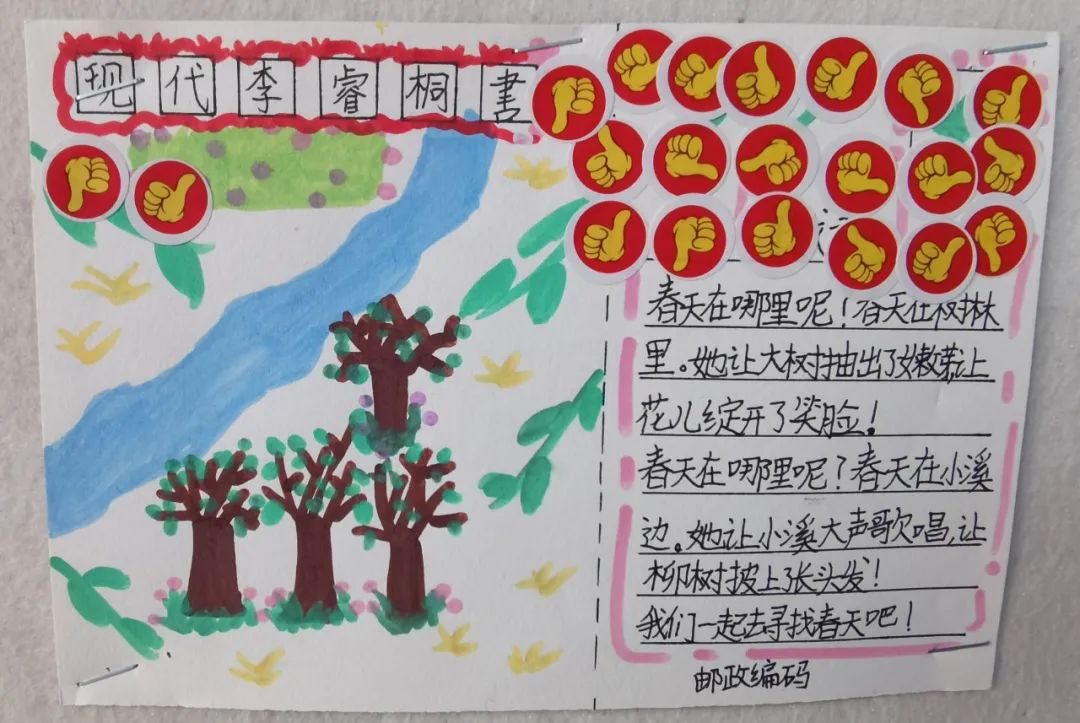 现代李睿桐書
春天在哪里呢！春天在树林
里。她让大树抽出了嫩芽,让
花儿绽开了笑脸！
春天在哪里呢？春天在小溪
边。她让小溪大声歌唱,让
柳树披上了长头发！
我们一起去寻找春天吧！
邮政编码